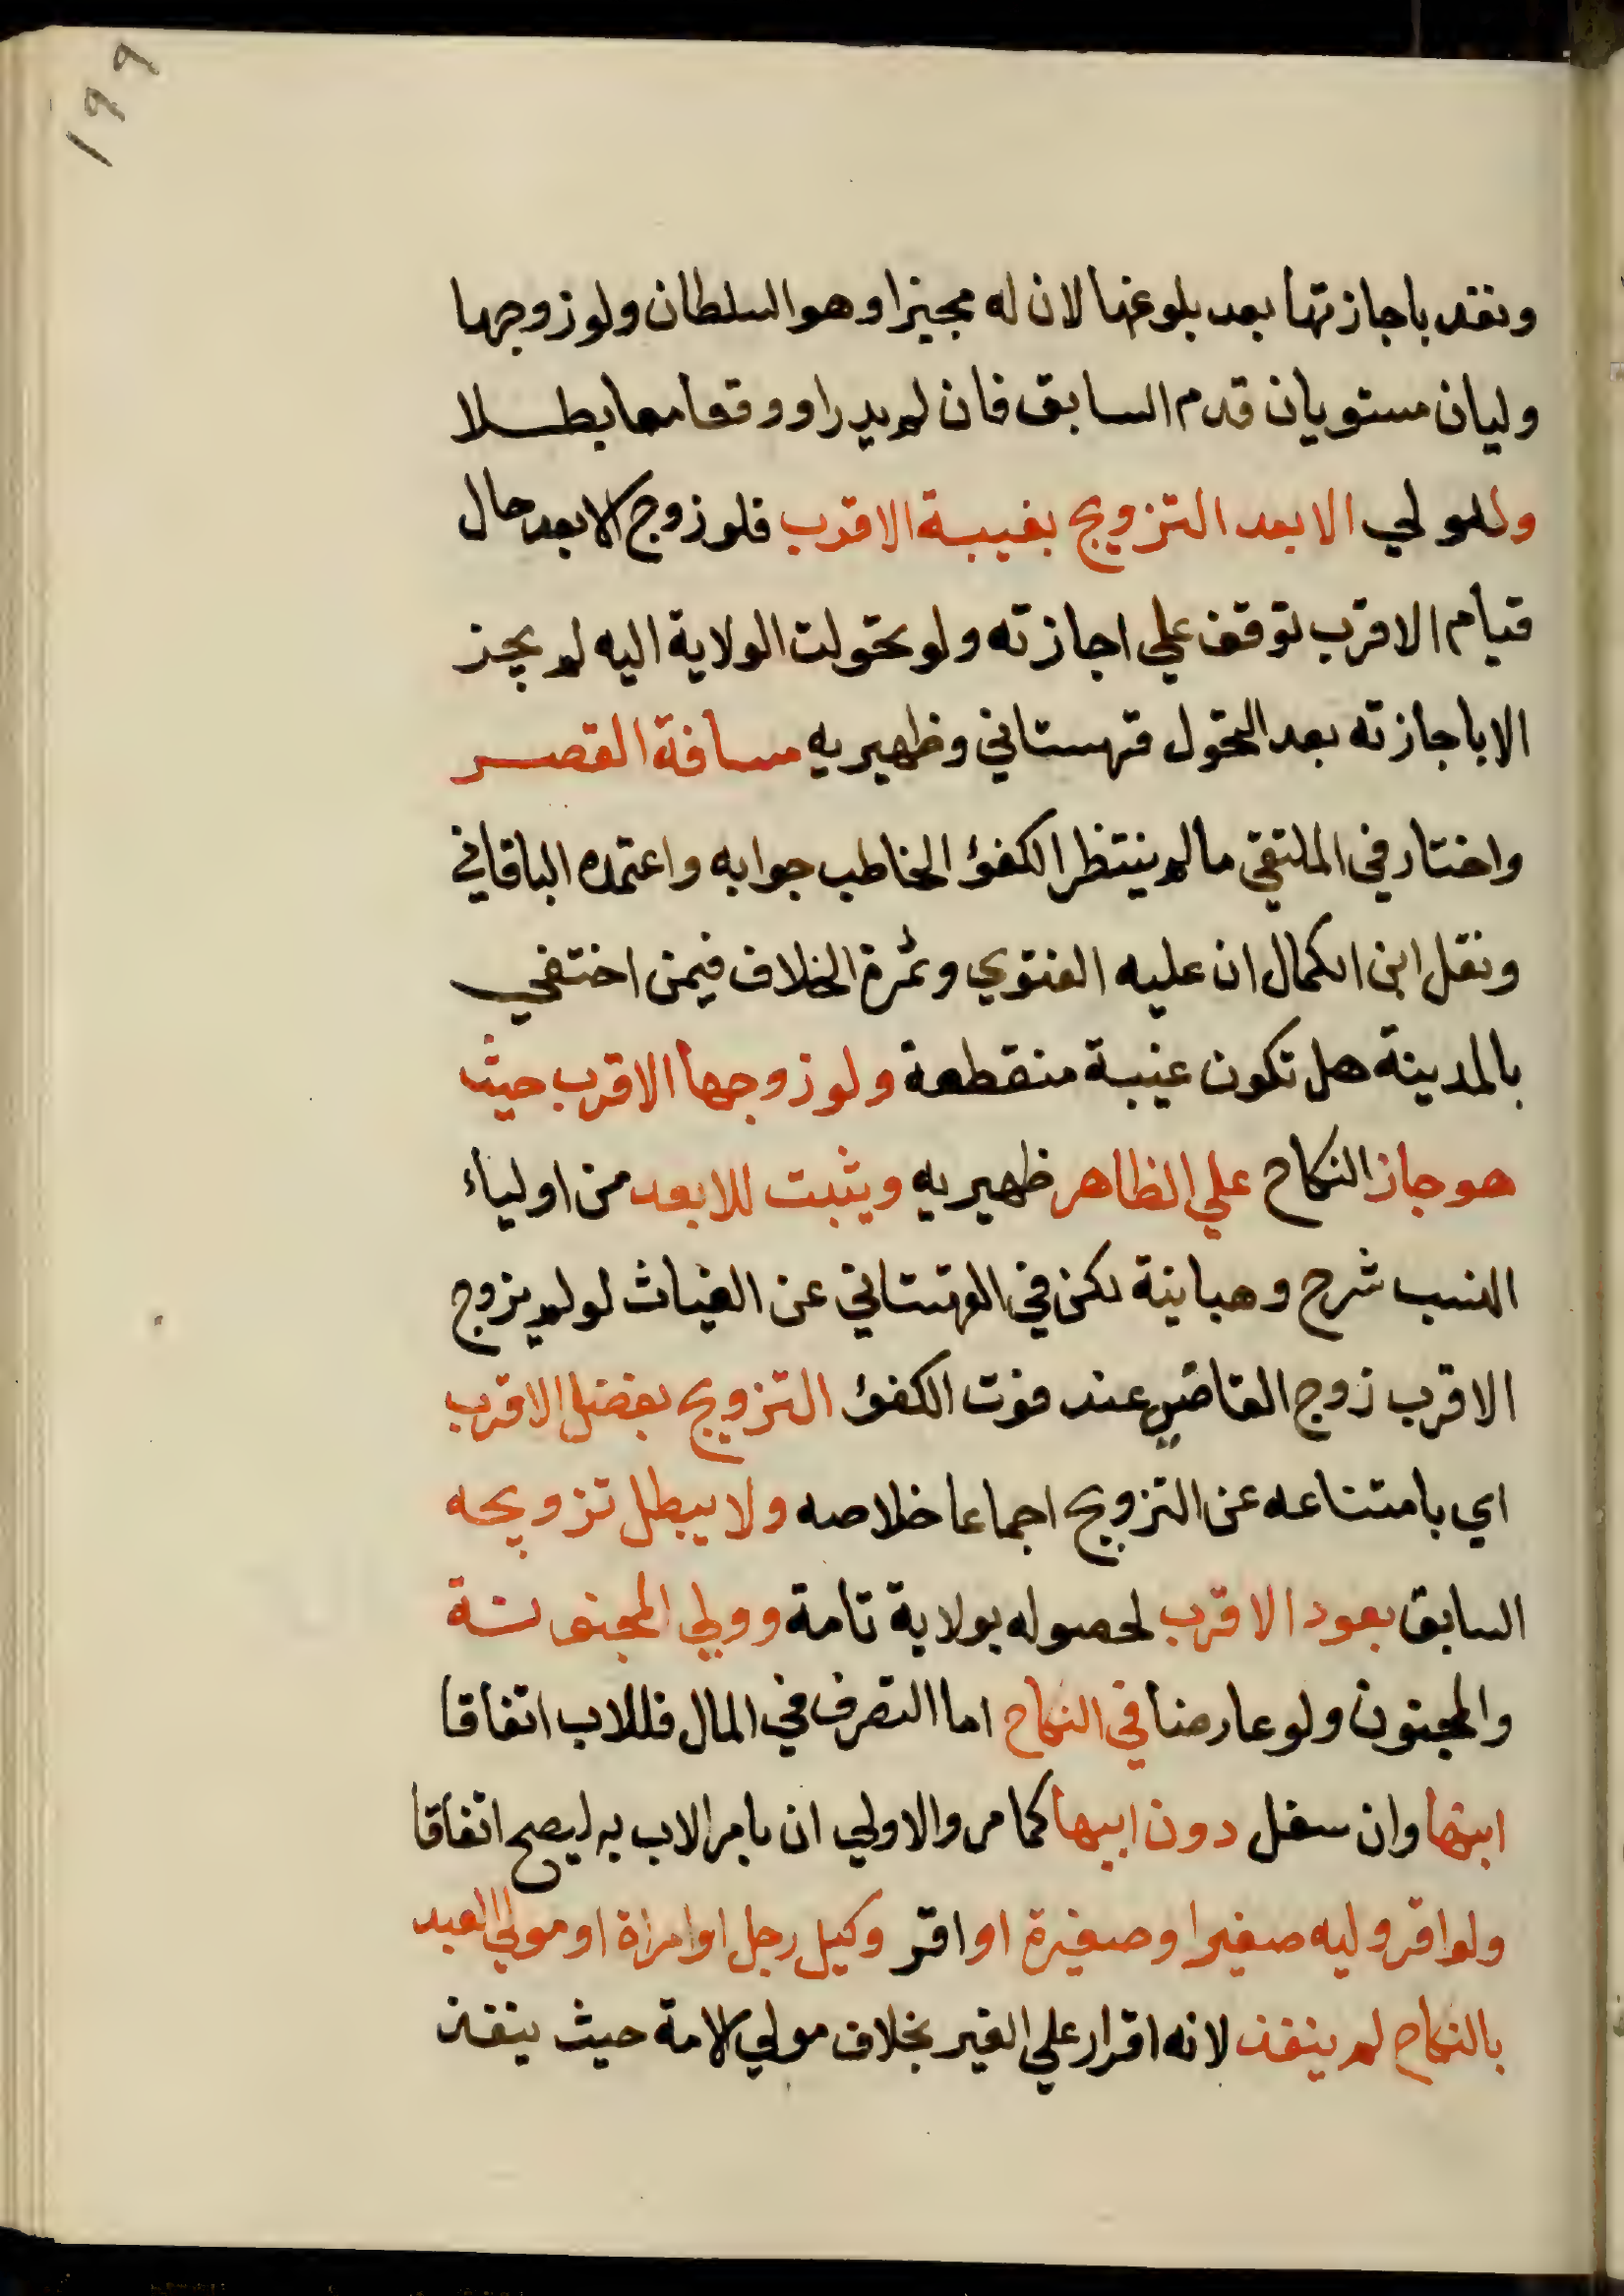 ١٩٩
ونفد باجازتها بعد بلوغها لان له مجيزا وهو السلطان ولو زوجها
وليان مستويان قدم السابق فان لم يدر او وقعا معا بطلا
وللولي الابعد التزويج بغيبة الاقرب فلو زوج الابعد حال
قيام الاقرب توقف علي اجازته ولو تحولت الولاية اليه لم يجز
الا باجازته بعد التحول قهستاني وظهيريه مسافة القصر
واختار في الملتقي ما لم ينتظر الكفؤ الخاطب جوابه واعتمده الباقاني
ونقل ابن الكمال ان عليه الفتوي وثمرة الخلاف فيمن اختفي
بالمدينة هل تكون غيبة منقطعة ولو زوجها الاقرب حيث
هو جاز النكاح علي الظاهر ظهيريه ويثبت للابعد من اولياء
النسب شرح وهبانية لكن في القهستاني عن الغياث لو لم يزوج
الاقرب زوج القاضي عند فوت الكفؤ التزويج بفضل الاقرب
اي بامتناعه عن التزويج اجماعا خلاصه ولا يبطل تزويجه
السابق بعود الاقرب لحصوله بولاية تامة وولي المجنونة
والمجنون ولو عارضا في النكاح اما التصرف في المال فللاب اتفاقا
ابنها وان سفل دون ابيها كما مر والاولي ان يامر الاب به ليصح اتفاقا
ولو اقر وليه صغيرا وصغيرة او اقر وكيل رجل او امراة او مولي العبد
بالنكاح لم ينفذ لانه اقرار علي الغير بخلاف مولي الامة حيث ينفذ